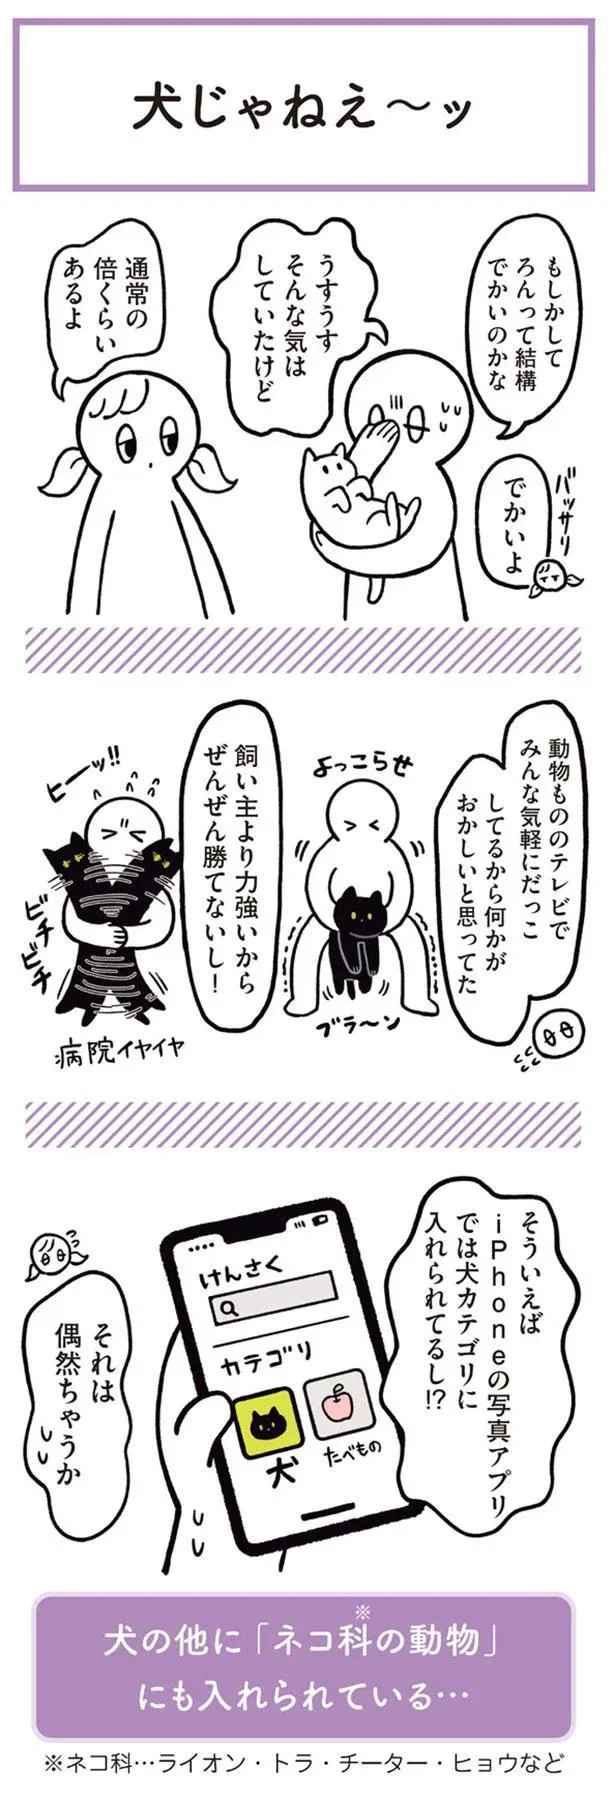 犬じゃねえ～ッ
もしかして
ろんって結構
でかいのかな
バッサリ
でかいよ
うすうす
そんな気は
していたけど
通常の
倍くらい
あるよ
動物もののテレビで
みんな気軽にだっこ
してるから何かが
おかしいと思ってた
よっこらせ
ブラ〜ン
飼い主より力強いから
ぜんぜん勝てないし！
ヒーッ!!
ビチ
ビチ
病院イヤイヤ
そういえば
iPhoneの写真アプリ
では犬カテゴリに
入れられてるし!?
けんさく
カテゴリ
犬
たべもの
それは
偶然ちゃうか
犬の他に「ネコ科※の動物」
にも入れられている…
※ネコ科…ライオン・トラ・チーター・ヒョウなど